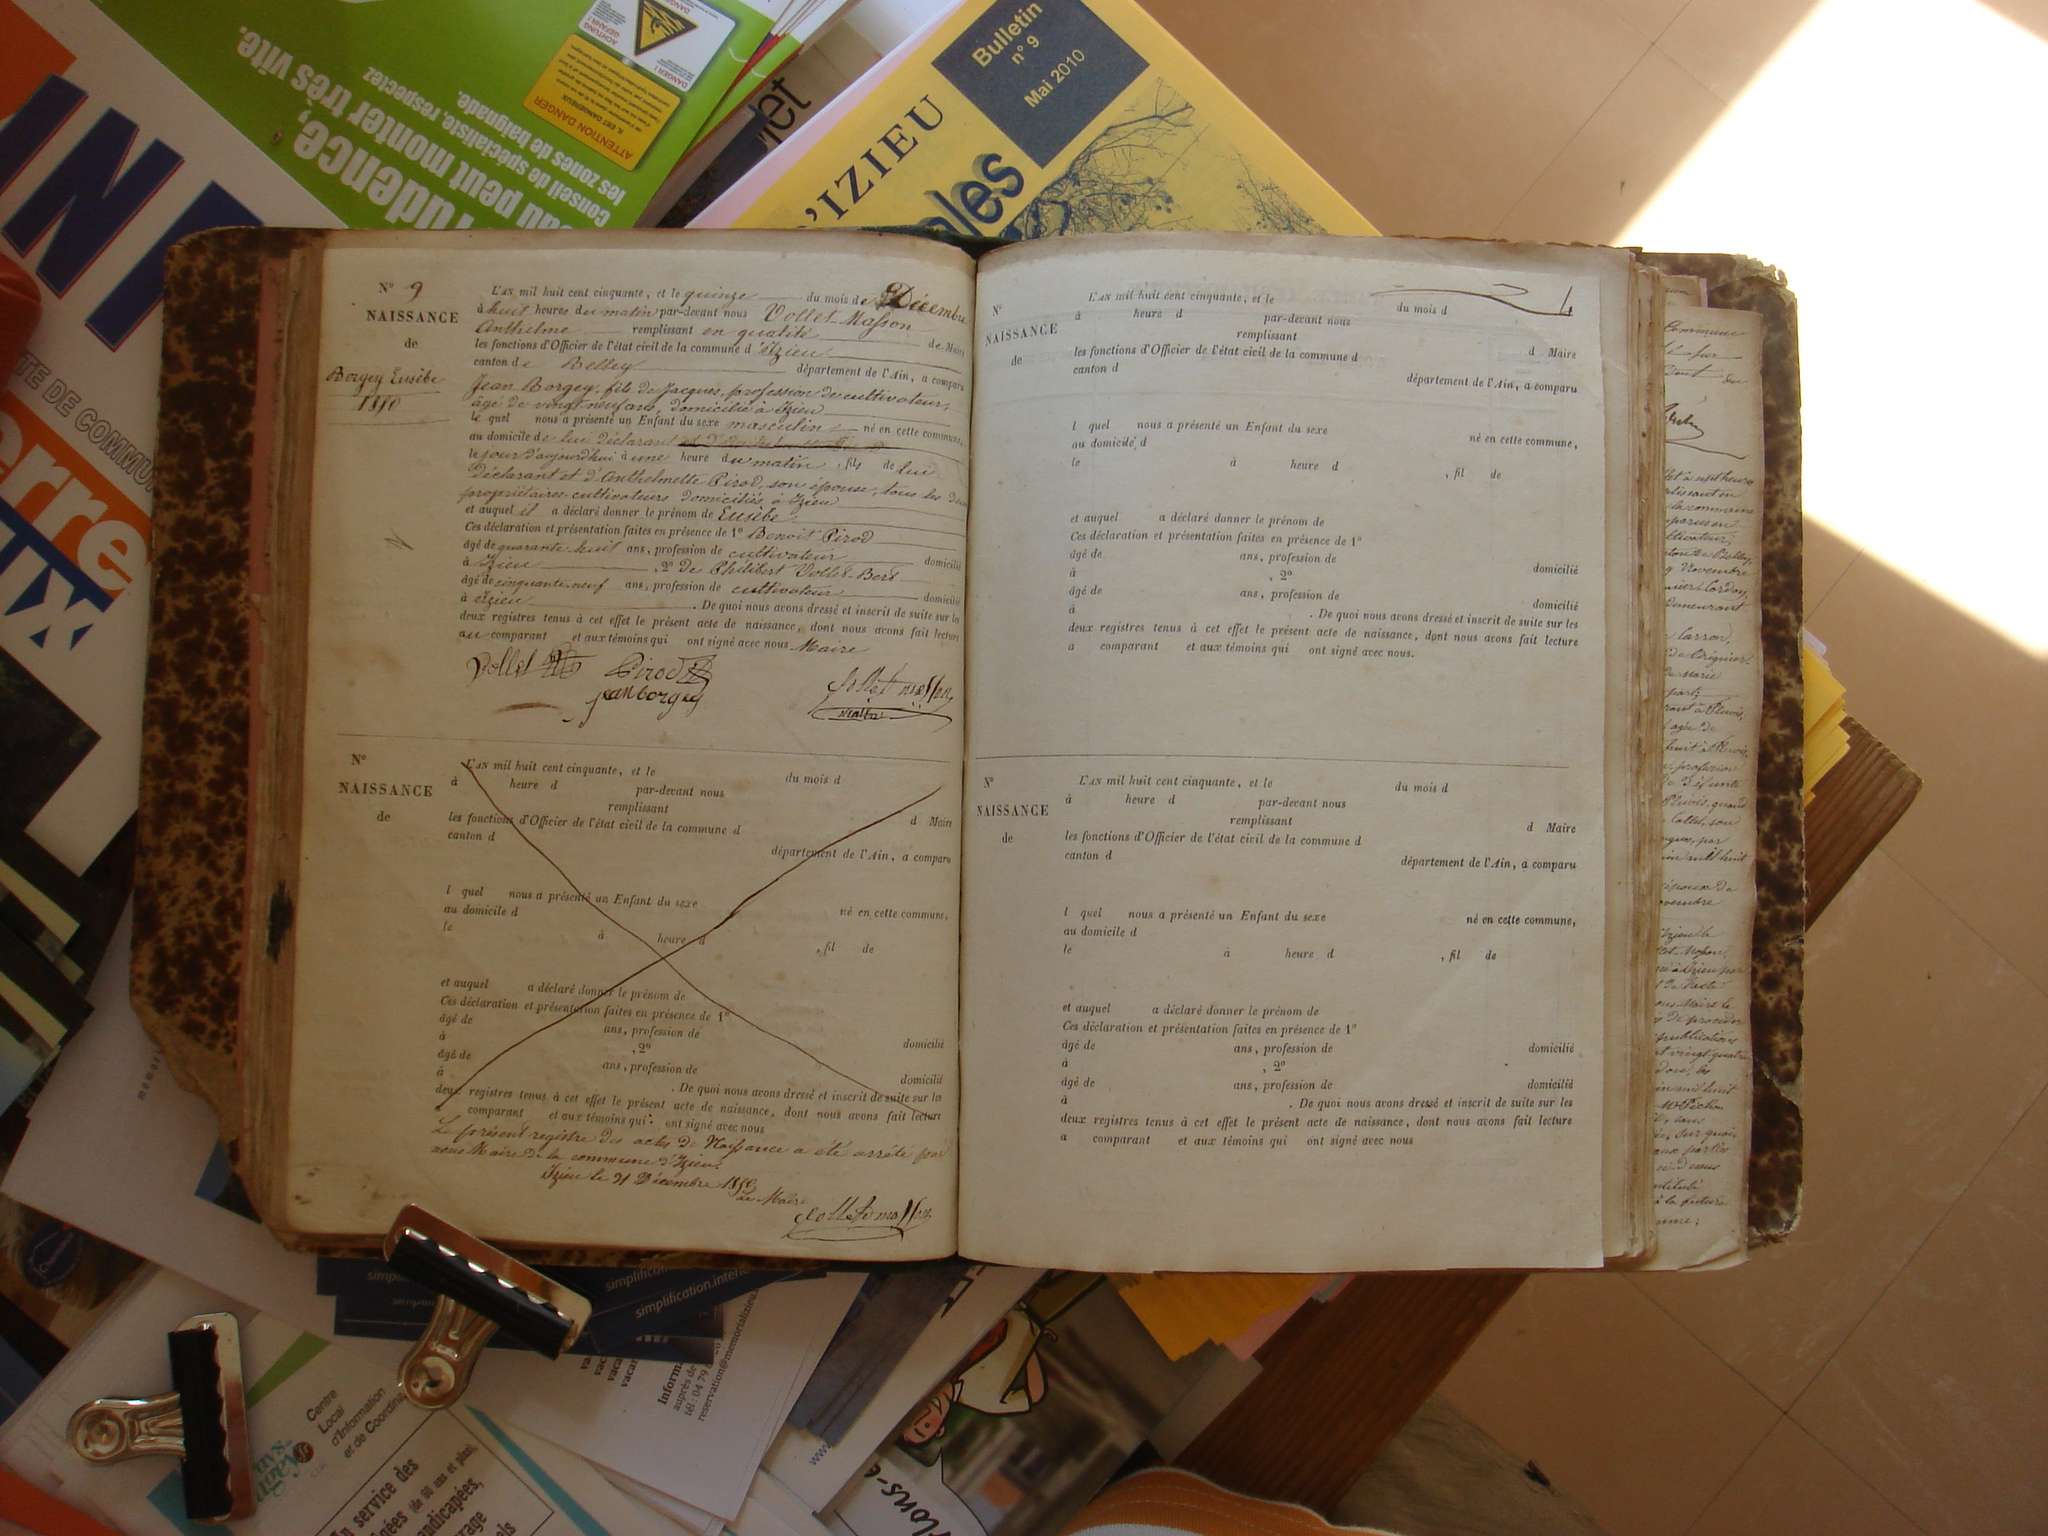 Bulletin
n° 9
Mai 2010
'IZIEU
ATTENTION DANGER
rudence,
eau peut monter très vite.
conseil de spécialiste, respectez
les zones de baignade.
N° 9
NAISSANCE
de
Borgey Eusèbe
1850
L'AN mil huit cent cinquante, et le quinze du mois de Décembre
à huit heures du matin par-devant nous Vollet-Masson
Anthelme remplissant en qualité de Maire
les fonctions d'Officier de l'état civil de la commune d'Izieu
canton de Belley département de l'Ain, a comparu
Jean Borgey, fils de Jacques, profession de cultivateur,
âgé de vingt neuf ans, domicilié à Izieu
le quel nous a présenté un Enfant du sexe masculin né en cette commune,
au domicile de lui déclarant
le jour d'aujourd'hui à une heure du matin, fils de lui
déclarant et d'Anthelmette Pirod, son épouse, tous les deux
propriétaires-cultivateurs domiciliés à Izieu
et auquel il a déclaré donner le prénom de Eusèbe
Ces déclaration et présentation faites en présence de 1° Benoit Pirod
âgé de quarante huit ans, profession de cultivateur domicilié
à Izieu, 2° de Philibert Vollet-Bert
âgé de cinquante-neuf ans, profession de cultivateur domicilié
à Izieu. De quoi nous avons dressé et inscrit de suite sur les
deux registres tenus à cet effet le présent acte de naissance, dont nous avons fait lecture
au comparant et aux témoins qui ont signé avec nous Maire
Vollet Pirod
jean borgey
Vollet masson
maire
N°
NAISSANCE
de
L'AN mil huit cent cinquante, et le du mois d
à heure d par-devant nous
remplissant
d Maire
les fonctions d'Officier de l'état civil de la commune d
canton d
département de l'Ain, a comparu
l quel nous a présenté un Enfant du sexe
né en cette commune,
au domicile d
le à heure d , fil de
et auquel a déclaré donner le prénom de
Ces déclaration et présentation faites en présence de 1°
âgé de ans, profession de
domicilié
à , 2°
âgé de ans, profession de
domicilié
à . De quoi nous avons dressé et inscrit de suite sur les
deux registres tenus à cet effet le présent acte de naissance, dont nous avons fait lecture
a comparant et aux témoins qui ont signé avec nous
Le présent registre des actes de Naissance a été arrêté par
nous Maire de la commune d'Izieu.
Izieu le 31 Décembre 1850
Le Maire
Vollet masson
4
N°
NAISSANCE
de
L'AN mil huit cent cinquante, et le du mois d
à heure d par-devant nous
remplissant
d Maire
les fonctions d'Officier de l'état civil de la commune d
canton d
département de l'Ain, a comparu
l quel nous a présenté un Enfant du sexe
né en cette commune,
au domicile d
le à heure d , fil de
et auquel a déclaré donner le prénom de
Ces déclaration et présentation faites en présence de 1°
âgé de ans, profession de
domicilié
à , 2°
âgé de ans, profession de
domicilié
à . De quoi nous avons dressé et inscrit de suite sur les
deux registres tenus à cet effet le présent acte de naissance, dont nous avons fait lecture
a comparant et aux témoins qui ont signé avec nous.
N°
NAISSANCE
de
L'AN mil huit cent cinquante, et le du mois d
à heure d par-devant nous
remplissant
d Maire
les fonctions d'Officier de l'état civil de la commune d
canton d
département de l'Ain, a comparu
l quel nous a présenté un Enfant du sexe
né en cette commune,
au domicile d
le à heure d , fil de
et auquel a déclaré donner le prénom de
Ces déclaration et présentation faites en présence de 1°
âgé de ans, profession de
domicilié
à , 2°
âgé de ans, profession de
domicilié
à . De quoi nous avons dressé et inscrit de suite sur les
deux registres tenus à cet effet le présent acte de naissance, dont nous avons fait lecture
a comparant et aux témoins qui ont signé avec nous
Centre
Local
d'Information
et de Coordina